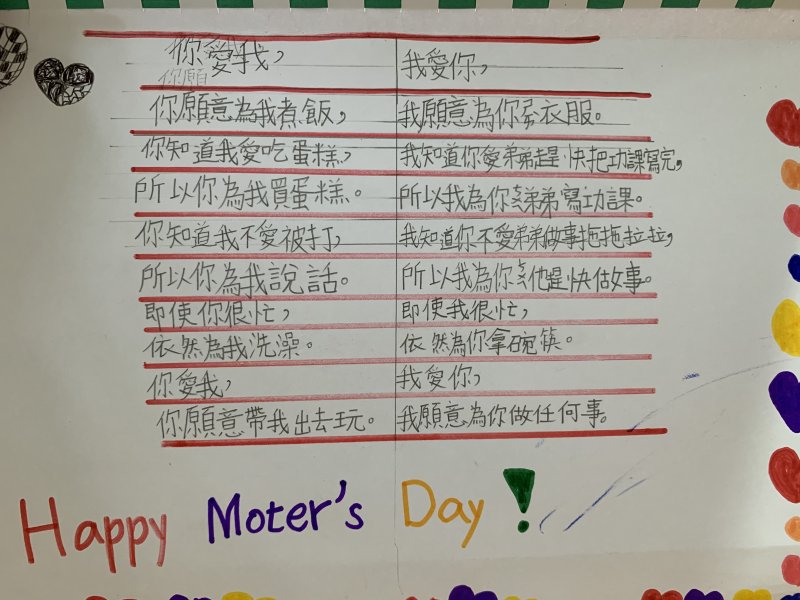 你愛我，
你願
你願意為我煮飯，
你知道我愛吃蛋糕，
所以你為我買蛋糕。
你知道我不愛被打，
所以你為我說話。
即使你很忙，
依然為我洗澡。
你愛我，
你願意帶我出去玩。
我愛你，
我願意為你 衣服。
我知道你愛弟弟趕快把功課寫完，
所以我為你 弟弟寫功課。
我知道你不愛弟弟做事拖拖拉拉，
所以我為你 他趕快做事。
即使我很忙，
依然為你拿碗筷。
我愛你，
我願意為你做任何事。
Happy Moter's Day!